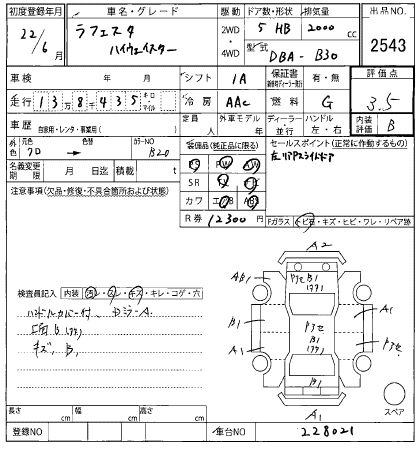 初度登録年月 車名・グレード 駆動 ドア数・形状 排気量 出品NO.
22/6 ラフェスタ ハイウェイスター 2WD・4WD 5 HB 2000 cc 2543
型式 DBA-B30
車検 年 月 シフト IA 保証書 有・無 評価点
走行 13万8千435 キロ・マイル 冷房 AAC 燃料 G 3.5
車歴 自家用・レンタ・事業用( ) 定員 人 外車モデル 年 ディーラー・並行 ハンドル 左・右 内装評価 B
外色 元色 クロ 色替 カラーNO B20
装備品(純正品に限る) セールスポイント(正常に作動するもの)
名義変更期限 月 日迄 積載 t PS PW AW 左リアスライドドア
注意事項(欠品・修復・不具合箇所および状態) SR
カワ
R券 12300円 Fガラス トビ石・キズ・ヒビ・ワレ・リペア跡
A2
AB1
B1
A1
A1
検査員記入 内装 汚レ・スレ・キズ・キレ・コゲ・穴
ハンドルカバー付
キズ、B1
B1
A1
スペア
長さ cm 幅 cm 高さ cm
登録NO 車台NO 228021